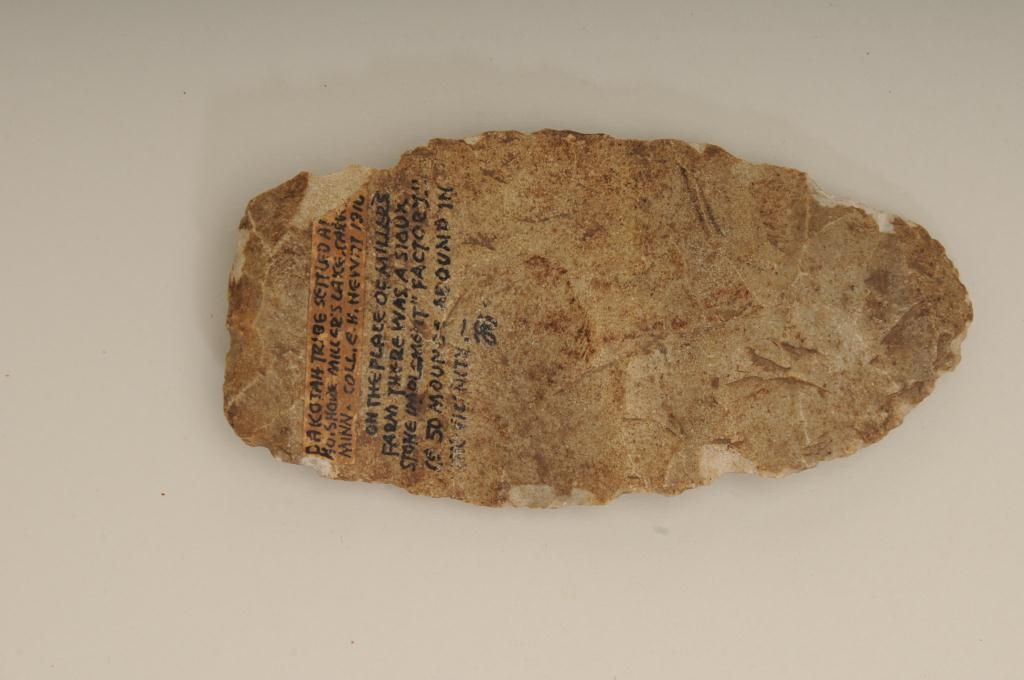 DAKOTAH TRIBE SETTLED AT
NO. SHORE MILLER'S LAKE, PARK
MINN. COLL. E. K. HEWITT 1916
ON THE PLACE OF MILLERS
FARM THERE WAS A SIOUX
STONE IMPLEMENT "FACTORY."
50 MOUNDS AROUND IN
VICINITY.—